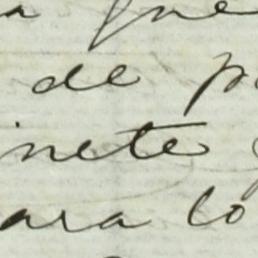 a fue
de p
inete
ara lo